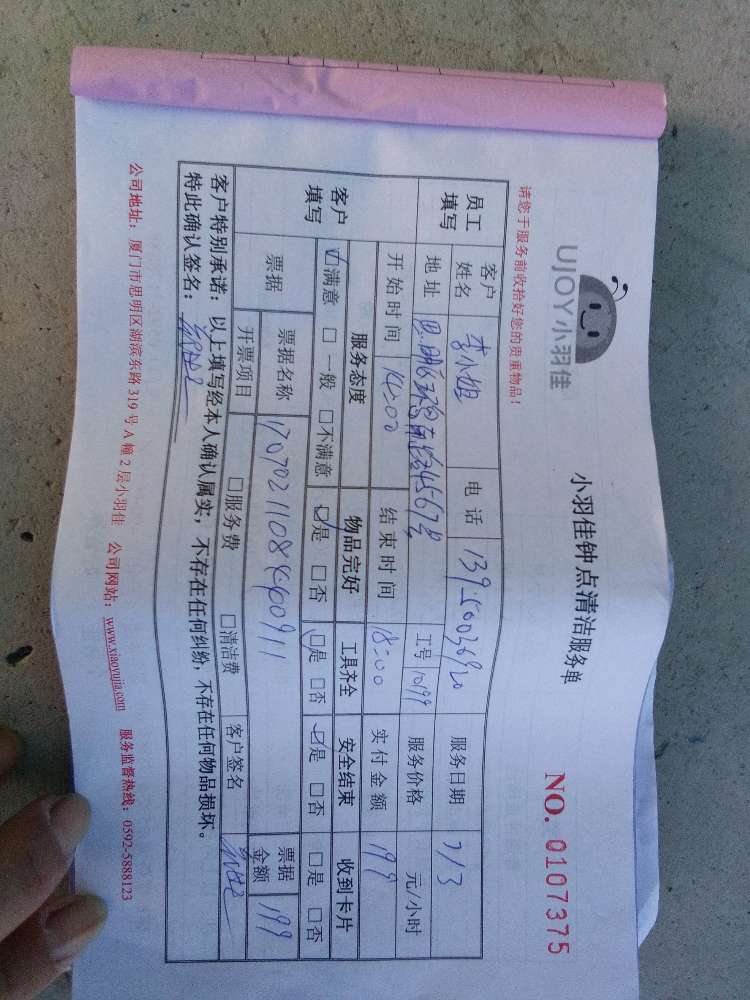 UJOY小羽佳
小羽佳钟点清洁服务单
NO. 0107375
请您于服务前收拾好您的贵重物品！
员工填写 客户姓名 李小姐 电话 13950036920 服务日期 7/3
地址 工号 10199 服务价格 元/小时
开始时间 14:00 结束时间 18:00 实付金额 199
客户填写 服务态度 物品完好 工具齐全 安全结束 收到卡片
☑满意 □一般 □不满意 ☑是 □否 ☑是 □否 ☑是 □否 □是 □否
票据 票据名称 票据金额 199
开票项目 □服务费 □清洁费 客户签名
客户特别承诺：以上填写经本人确认属实，不存在任何纠纷，不存在任何物品损坏。
特此确认签名：
公司地址：厦门市思明区湖滨东路319号A幢2层小羽佳 公司网站：www.xiaoyujia.com 服务监督热线：0592-5888123